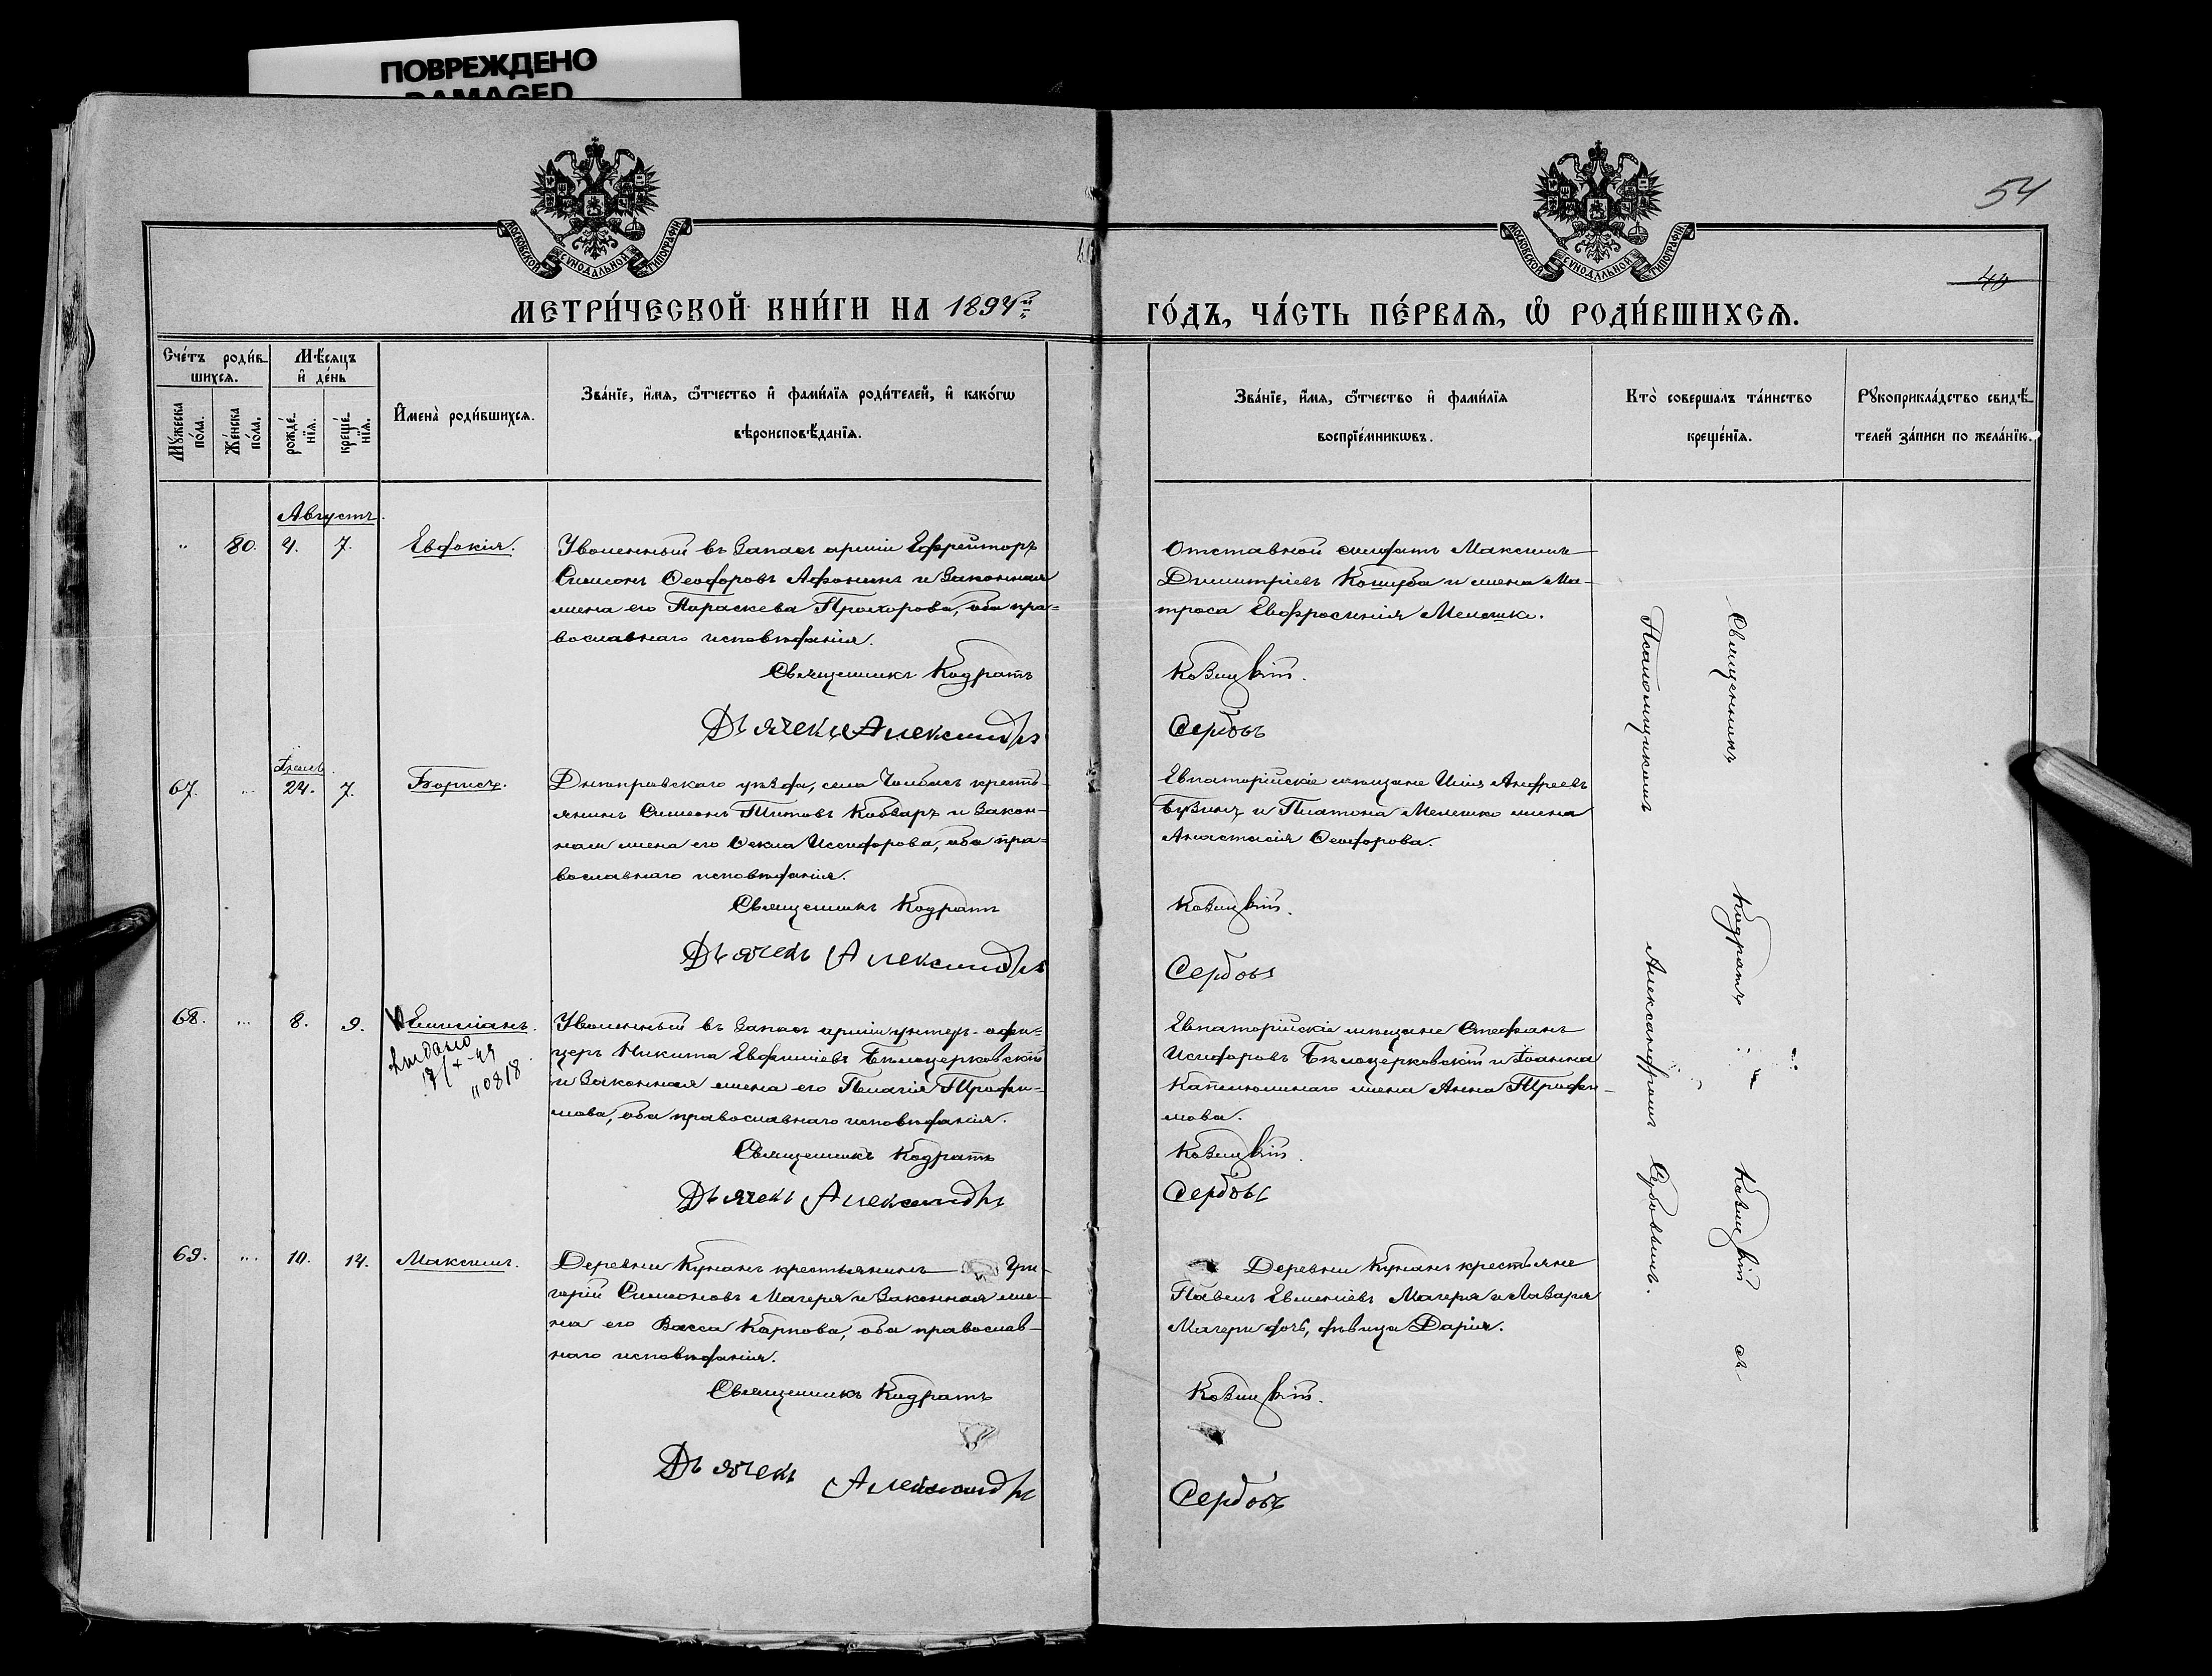 ПОВРЕЖДЕНО
DAMAGED
МОСКОВСКОЙ СѴНОДАЛЬНОЙ ТИПОГРАФІИ
МОСКОВСКОЙ СѴНОДАЛЬНОЙ ТИПОГРАФІИ
54
40
МЕТРИ́ЧЕСКОЙ КНИ́ГИ НА 1894й
ГО́ДЪ, ЧА́СТЬ ПЕ́РВАѦ, Ѡ РОДИ́ВШИХСѦ.
Сче́тъ роди́в-
шихсѧ.
Мꙋ́жеска по́ла.
Же́нска по́ла.
Мѣ́сѧцъ
и҆ де́нь
рожде́нїѧ.
креще́нїѧ.
И҆мена̀ роди́вшихсѧ.
Зва́нїе, и҆́мѧ, ѻ҆́тчество и҆ фами́лїѧ роди́телей, и҆ како́гѡ
вѣроисповѣ́данїѧ.
Зва́нїе, и҆́мѧ, ѻ҆́тчество и҆ фами́лїѧ
воспрїе́мникѡвъ.
Кто̀ соверша́лъ та́инство
креще́нїѧ.
Рꙋкоприкла́дство свидѣ́-
телей за́писи по жела́нїю.
Августъ.
„ 80. 4. 7. Евдокія.
Уволенный въ запасъ арміи Ефрейторъ
Симеонъ Ѳеодоровъ Афонинъ и законная
жена его Параскева Прохорова, оба пра=
вославнаго исповѣданія.
Священникъ Кодратъ
Дьячекъ Александръ
Отставной солдатъ Максимъ
Димитріевъ Кошуба и жена ма-
троса Евфросинія Мелешко.
Козицкій.
Сербовъ
Іюль
67. „ 24. 7. Борисъ.
Днѣпровскаго уѣзда, села Чолбасъ кресть-
янинъ Симеонъ Титовъ Кобзарь и закон-
ная жена его Ѳекла Иссидорова, оба пра-
вославнаго исповѣданія.
Священникъ Кодратъ
Дьячекъ Александръ
Евпаторійскіе мѣщане Илія Андреевъ
Бузинъ и Платона Мелешко жена
Анастасія Ѳеодорова.
Козицкій.
Сербовъ
68. „ 8. 9. Емиліанъ.
Выдано
7/X-49
„0818
Уволенный въ запасъ арміи унтеръ-офи=
церъ Никита Евфиміевъ Бѣлоцерковскій
и законная жена его Пелагія Трофи-
мова, оба православнаго исповѣданія.
Священникъ Кодратъ
Дьячекъ Александръ
Евпаторійскіе мѣщане Стефанъ
Исидоровъ Бѣлоцерковскій и Іоанна
жена Анна Трофи-
мова.
Козицкій.
Сербовъ
69. „ 10. 14. Максимъ.
Деревни Кунанъ крестьянинъ Гри-
горій Симеоновъ Магеря и законная же-
на его Васса Карпова, оба православ-
наго исповѣданія.
Священникъ Кодратъ
Дьячекъ Александръ
Деревни Кунанъ крестьяне
Павелъ Евменіевъ Магеря и Лазаря
Магери дочь, дѣвица Дарія.
Козицкій.
Сербовъ
Священникъ Кодратъ Козицкій съ
Псаломщикомъ Александромъ Сербовымъ.